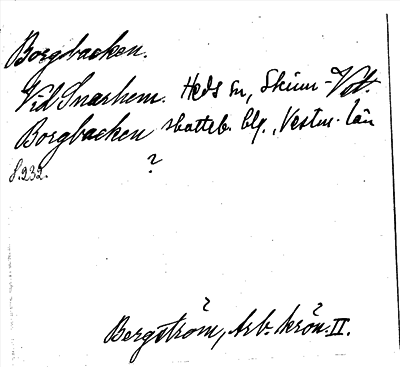 Borgbacken.
Vid Snarhem. Heds sn, Skinn- Vstm.
Borgbacken skatteb. blg., Vestm. län
s. 232. ?
?
Bergström, Arb. krön. II.